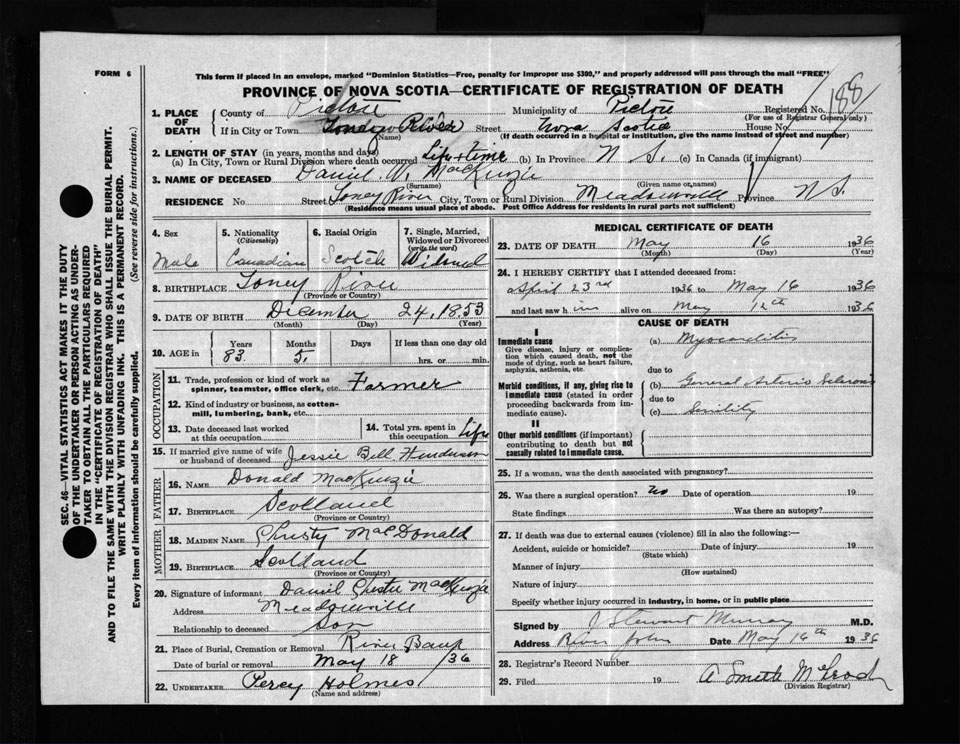 FORM 6
This form if placed in an envelope, marked "Dominion Statistics—Free, penalty for improper use $300," and properly addressed will pass through the mail "FREE"
PROVINCE OF NOVA SCOTIA—CERTIFICATE OF REGISTRATION OF DEATH
1. PLACE OF DEATH
County of Pictou Municipality of Pictou Registered No. 188
(For use of Registrar General only)
If in City or Town Toney River Street Nova Scotia House No.
(Name) (If death occurred in a hospital or institution, give the name instead of street and number)
2. LENGTH OF STAY (in years, months and days)
(a) In City, Town or Rural Division where death occurred Life time (b) In Province N S. (c) In Canada (if immigrant)
3. NAME OF DECEASED Daniel W. MacKenzie
(Surname) (Given name or names)
RESIDENCE No. Street Toney River City, Town or Rural Division Meadowville Province N S.
(Residence means usual place of abode. Post Office Address for residents in rural parts not sufficient)
4. Sex
Male
5. Nationality
(Citizenship)
Canadian
6. Racial Origin
Scotch
7. Single, Married, Widowed or Divorced
(write the word)
8. BIRTHPLACE Toney River
(Province or Country)
9. DATE OF BIRTH December 24, 1853
(Month) (Day) (Year)
10. AGE in
Years 83
Months 5.
Days
If less than one day old
hrs. or min.
OCCUPATION
11. Trade, profession or kind of work as spinner, teamster, office clerk, etc. Farmer
12. Kind of industry or business, as cotton-mill, lumbering, bank, etc.
13. Date deceased last worked at this occupation
14. Total yrs. spent in this occupation Life
15. If married give name of wife or husband of deceased Jessie Bell Henderson
FATHER
16. NAME Donald MacKenzie
17. BIRTHPLACE Scotland
(Province or Country)
MOTHER
18. MAIDEN NAME Christy MacDonald
19. BIRTHPLACE Scotland
(Province or Country)
20. Signature of informant Daniel Chester MacKenzie
Address Meadowville
Relationship to deceased Son
21. Place of Burial, Cremation or Removal River
Date of burial or removal May 18 /36
22. UNDERTAKER Percy Holmes
(Name and address)
MEDICAL CERTIFICATE OF DEATH
23. DATE OF DEATH May 16 1936
(Month) (Day) (Year)
24. I HEREBY CERTIFY that I attended deceased from:
April 23rd 1936 to May 16 1936
and last saw him alive on May 12th 1936
CAUSE OF DEATH
I
Immediate cause
Give disease, injury or complication which caused death, not the mode of dying, such as heart failure, asphyxia, asthenia, etc.
(a) Myocarditis
due to
Morbid conditions, if any, giving rise to immediate cause (stated in order proceeding backwards from immediate cause).
(b) General Arterio Sclerosis
due to
(c) Senility
II
Other morbid conditions (if important) contributing to death but not causally related to immediate cause.
25. If a woman, was the death associated with pregnancy?
26. Was there a surgical operation? no Date of operation 19
State findings Was there an autopsy?
27. If death was due to external causes (violence) fill in also the following:—
Accident, suicide or homicide? Date of injury 19
(State which)
Manner of injury
(How sustained)
Nature of injury
Specify whether injury occurred in industry, in home, or in public place
Signed by J Stewart Murray M.D.
Address River John Date May 16th 1936
28. Registrar's Record Number
29. Filed 19 A Smith McLeod
(Division Registrar)
SEC. 46—VITAL STATISTICS ACT MAKES IT THE DUTY
OF THE UNDERTAKER OR PERSON ACTING AS UNDERTAKER TO OBTAIN ALL THE PARTICULARS REQUIRED
IN THE "CERTIFICATE OF REGISTRATION OF DEATH"
AND TO FILE THE SAME WITH THE DIVISION REGISTRAR WHO SHALL ISSUE THE BURIAL PERMIT.
WRITE PLAINLY WITH UNFADING INK. THIS IS A PERMANENT RECORD.
Every item of information should be carefully supplied. (See reverse side for instructions.)